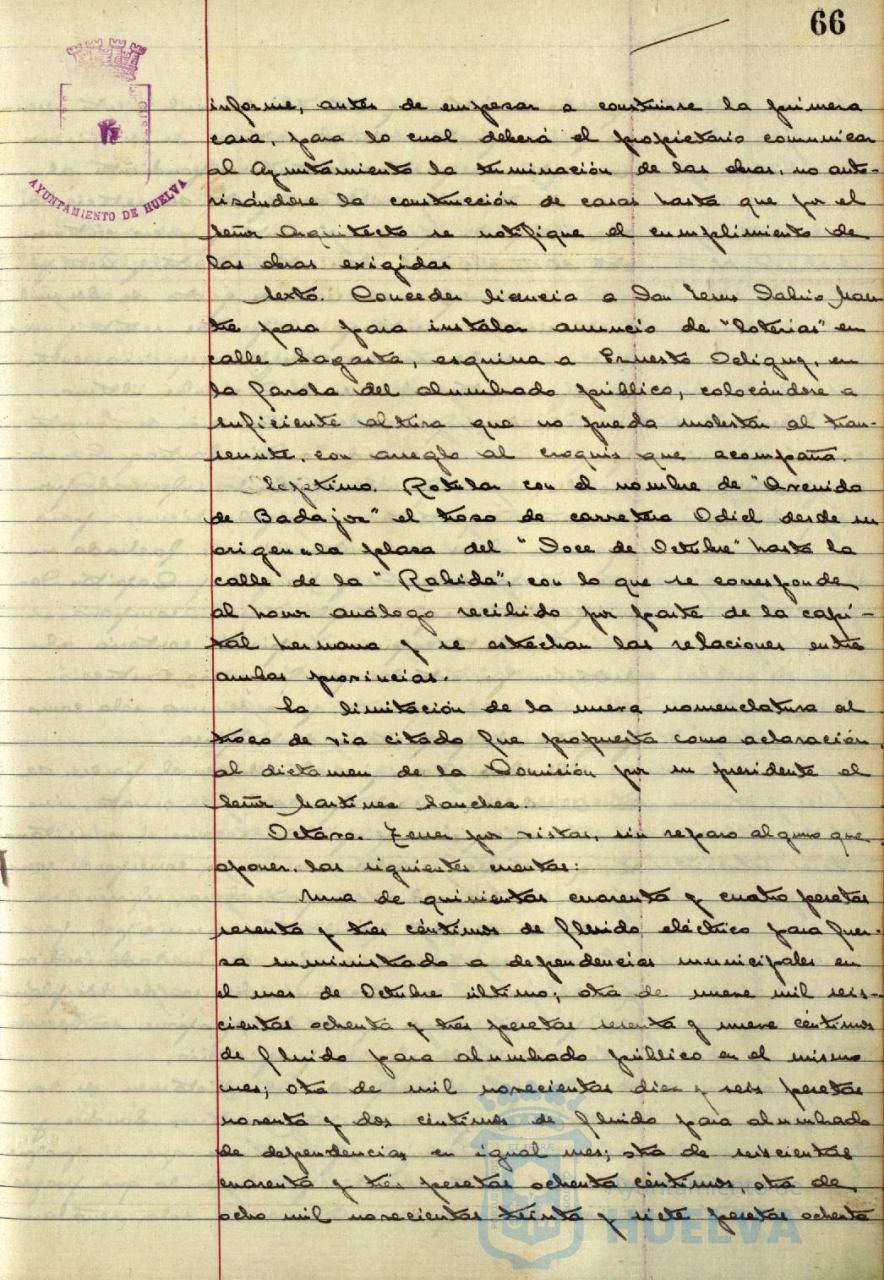 66
AYUNTAMIENTO DE HUELVA
informe, antes de empezar a construirse la primera
casa, para lo cual deberá el propietario comunicar
al Ayuntamiento la terminación de las obras, no auto-
rizándose la construcción de casas hasta que por el
señor Arquitecto se notifique el cumplimiento de
las obras exigidas
Sexto. Conceder licencia a Don
para para instalar anuncio de "Loterias" en
calle Sagasta, esquina a Ernesto Deligny, en
la farola del alumbrado público, colocándose a
suficiente altura que no pueda molestar al tran-
seunte, con arreglo al croquis que acompaña.
Septimo. Rotular con el nombre de "Avenida
de Badajoz" el trozo de carretera Odiel desde su
origen en la plaza del "Doce de Octubre" hasta la
calle de la "Rabida", con lo que se corresponde
al honor análogo recibido por parte de la capi-
tal hermana y se estrechan las relaciones entre
ambas provincias.
La limitación de la nueva nomenclatura al
trozo de via citado fue propuesta como aclaración
al dictamen de la Comisión por su presidente el
señor Martinez Sanchez.
Octavo. Tener por vistas, sin reparo alguno que
oponer, las siguientes cuentas:
Una de quinientas cuarenta y cuatro pesetas
sesenta y tres céntimos de fluido eléctrico para fuer-
za suministrado a dependencias municipales en
el mes de Octubre último; otra de nueve mil seis-
cientas ochenta y tres pesetas sesenta y nueve céntimos
de fluido para alumbrado público en el mismo
mes; otra de mil novecientas diez y seis pesetas
noventa y dos céntimos de fluido para alumbrado
de dependencias en igual mes; otra de seiscientas
cuarenta y tres pesetas ochenta céntimos, otra de
ocho mil novecientas treinta y siete pesetas ochenta
Ayuntamiento de
HUELVA